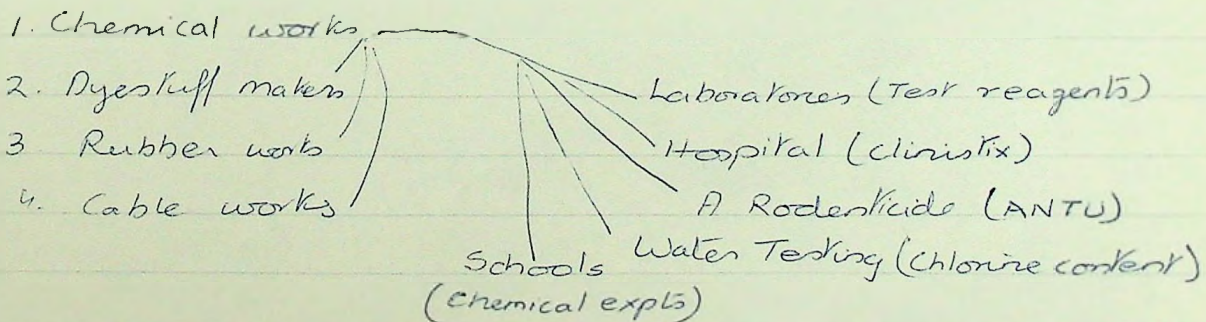 1. Chemical works
2. Dyestuff makers
3 Rubber works
4. Cable works
Laboratories (Test reagents)
Hospital (clinistix)
A Rodenticide (ANTU)
Water Testing (Chlorine content)
Schools
(Chemical expts)